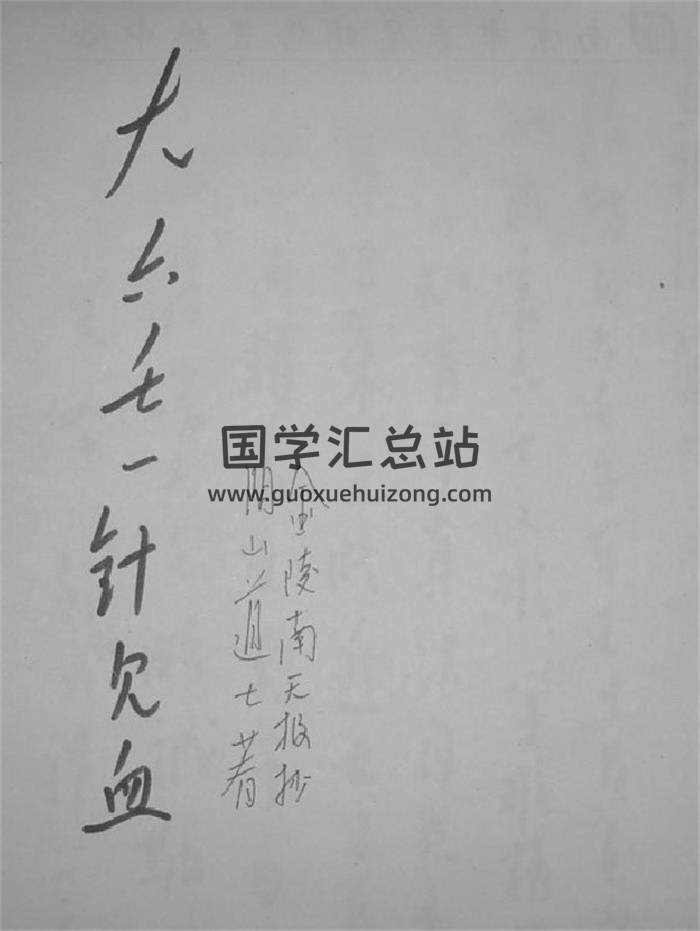 大六壬一针见血
金陵南天振抄
阴山道士著
国学汇总站
www.guoxuehuizong.com